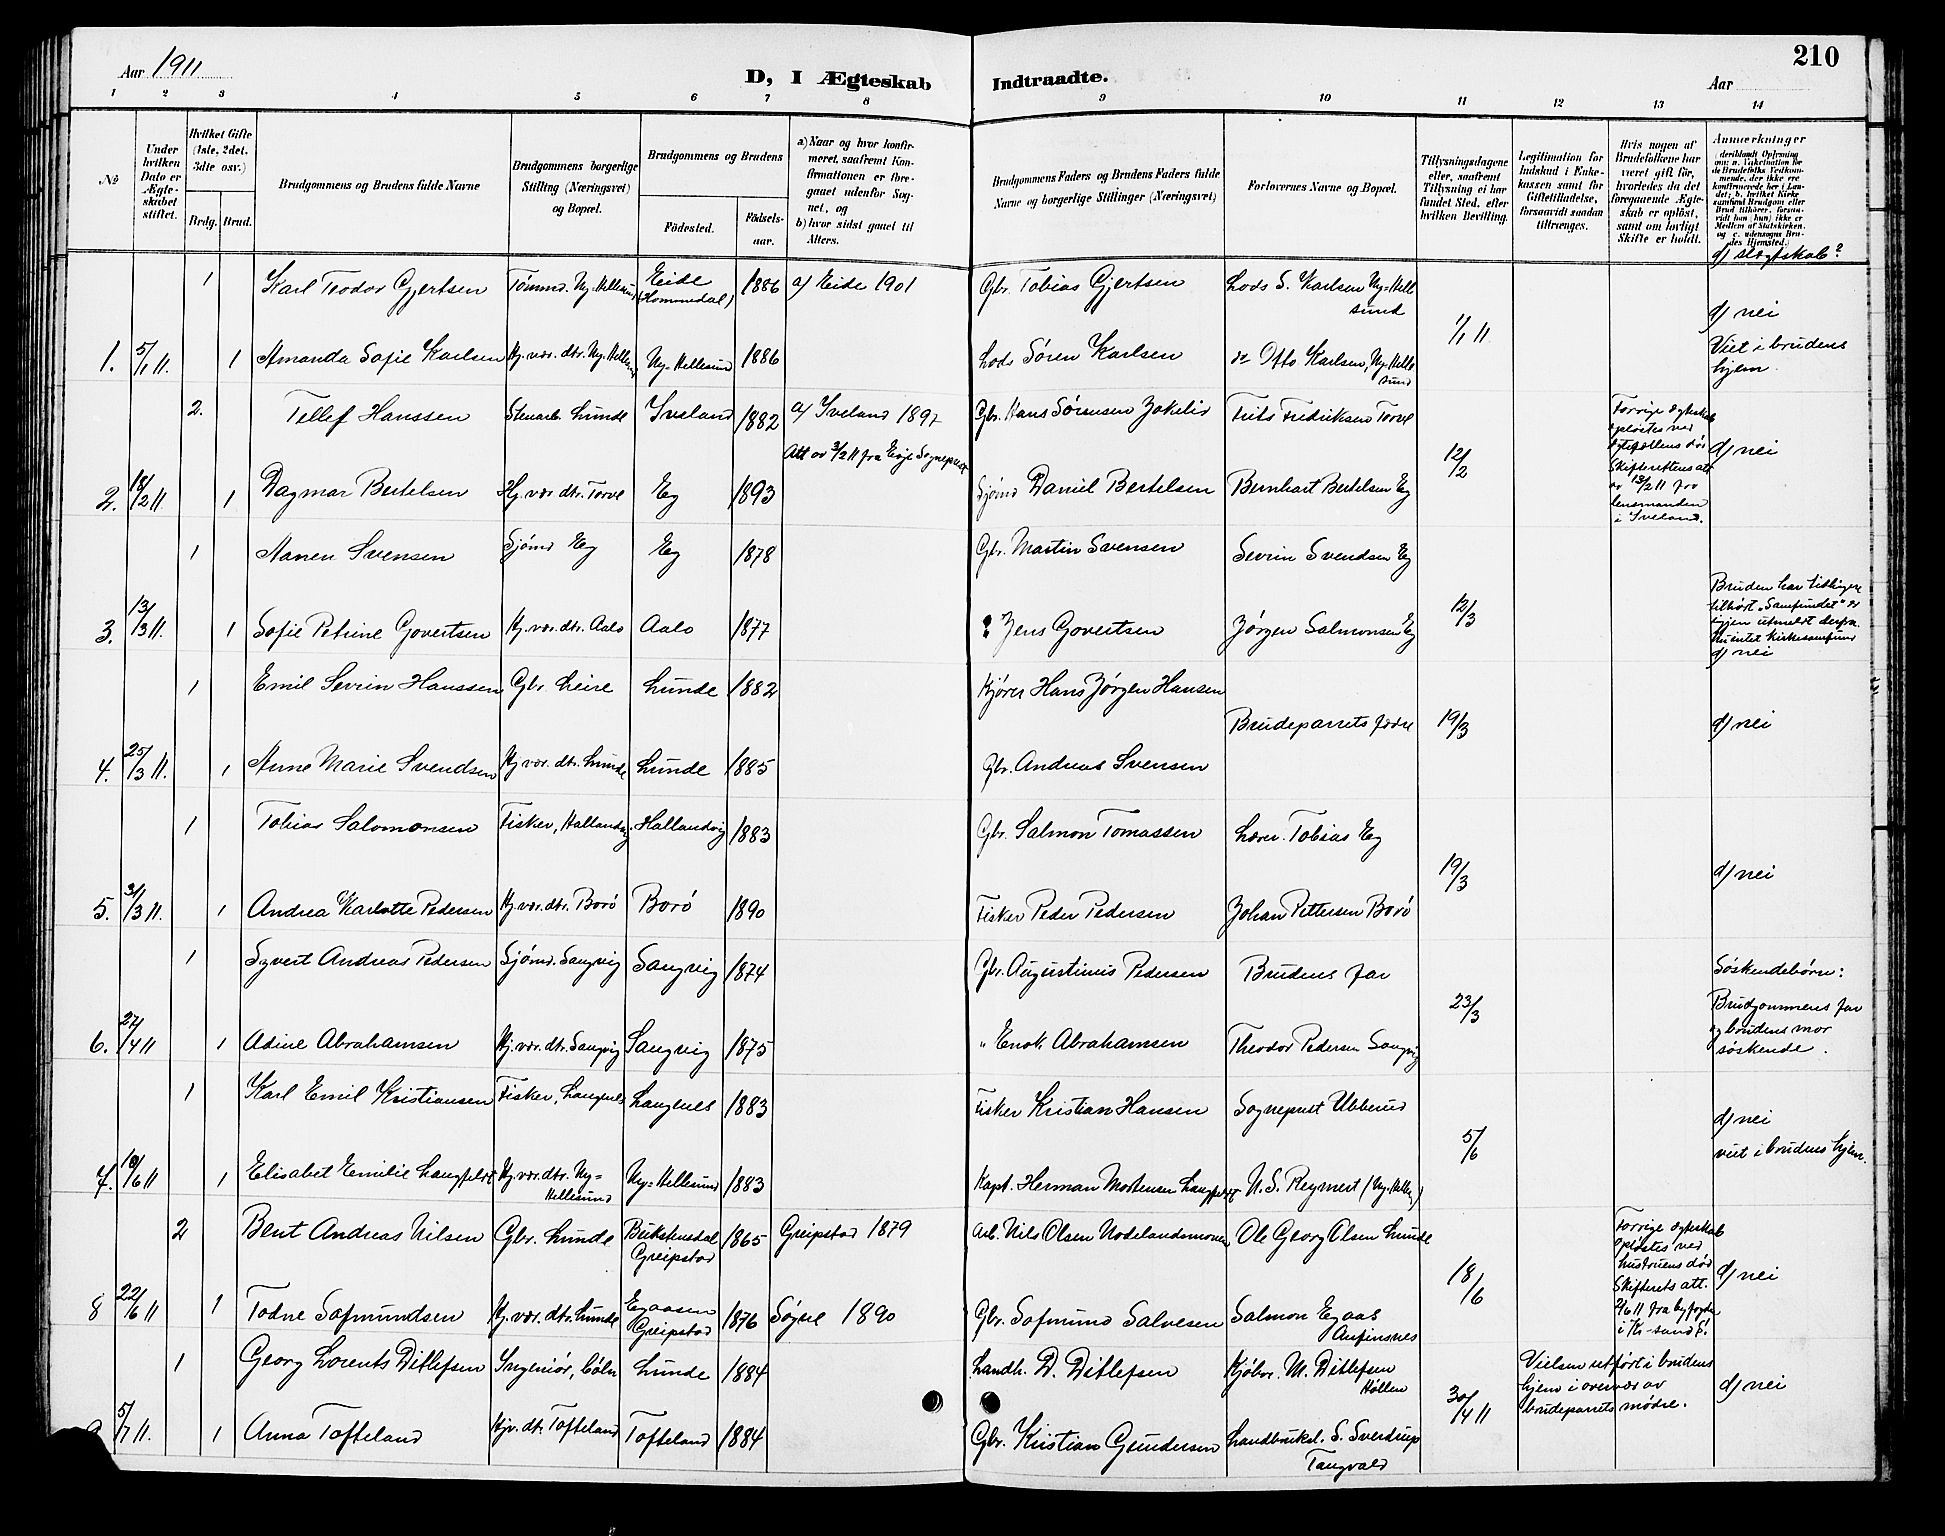 Aar 1911
D, I Ægteskab Indtraadte.
210
Aar
1 2 3 4 5 6 7 8 9 10 11 12 13 14
No
Under hvilken Dato er Ægteskabet stiftet.
Hvilket Gifte (1ste, 2det, 3die osv.)
Brdg. Brud.
Brudgommens og Brudens fulde Navne
Brudgommens borgerlige Stilling (Næringsvei) og Bopæl.
Brudgommens og Brudens
Fødested. Fødselsaar.
a) Naar og hvor konfirmeret, saafremt Konfirmationen er foregaaet udenfor Sognet, og
b) hvor sidst gaaet til Alters.
Brudgommens Faders og Brudens Faders fulde Navne og borgerlige Stillinger (Næringsvei)
Forlovernes Navne og Bopæl.
Tillysningsdagene eller, saafremt Tillysning ei har fundet Sted, efter hvilken Bevilling.
Legitimation for Indskud i Enkekassen samt for Giftetilladelse, forsaavidt saadan tiltrænges.
Hvis nogen af Brudefolkene har været gift før, hvorledes da det foregaaende Ægteskab er opløst, samt om lovligt Skifte er holdt.
Anmærkninger
d) slægtskab?
1 Karl Teodor Gjertsen Tømmd. Ny-Hellesund Eide (Hommedal) 1886 a) Eide 1901 Gbr. Tobias Gjertsen Lods S. Karlsen Ny-Hellesund
1/1 11 d) nei
1. 5/1 11. 1 Amanda Sofie Karlsen Hj. vær. dtr. Ny-Hellesund Ny-Hellesund 1886 Lods Søren Karlsen Otto Karlsen, Ny-Hellesund Viet i brudens hjem.
2. Tellef Hanssen Stenarb. Lunde Iveland 1882 a) Iveland 1897 Gbr. Hans Sørensen Frits Fredriksen Torve Forrige egteskab opløstes ved
Att av 3/2 11 fra Sogneprest 12/2 d) nei
2. 18/2 11. 1 Dagmar Bertelsen Hj. vær. dtr. Torve Eg 1893 Sjømd Daniel Bertelsen Bernhart Bertelsen Eg Skifterettens att av 13/2 11 fra lensmanden i Iveland.
1 Nanen Svensen Sjømd Eg Eg 1878 Gbr. Martin Svensen Sevrin Svendsen Eg
12/3 Bruden har tidligere tilhørt "Samfundet"
3. 13/3 11. 1 Sofie Petrine Govertsen Hj. vær. dtr. Aalo Aalo 1877 Jens Govertsen Jørgen Salmonsen Eg d) nei
1 Emil Sevrin Hanssen Gbr. Leire Lunde 1882 Kjører Hans Jørgen Hansen
Brudeparrets fædre 19/3 d) nei
4. 25/3 11. 1 Anne Marie Svendsen Hj vær. dtr. Lunde Lunde 1885 Gbr. Andreas Svensen
1 Tobias Salomonsen Fisker, Hallandvig Hallandvig 1883 Gbr. Salmon Tomassen Lærer Tobias Eg
19/3 d) nei
5. 31/3 11. 1 Andrea Karlotte Pedersen Hj. vær. dtr. Borø Borø 1890 Fisker Peder Pedersen Johan Pettersen Borø
1 Syvert Andreas Pedersen Sjømd. Sangvig Sangvig 1874 Gbr. Augustinus Pedersen Brudens far Søskendebørn:
23/3 Brudgommens far og brudens mor søskende.
6. 27/4 11 1 Adine Abrahamsen Hj. vær. dtr. Sangvig Sangvig 1875 " Enok Abrahamsen Theodor Pedersen Sangvig
1 Karl Emil Kristiansen Fisker, Langenes Langenes 1883 Fisker Kristian Hansen Sogneprest Ubberud
5/6 d) nei
viet i brudens hjem.
7. 10/6 11 1 Elisabet Emilie Langfeldt Hj. vær. dtr. Ny-Hellesund Ny-Hellesund 1883 Kapt. Herman Mortensen Langfeldt N. S. Reymert (Ny-Helles)
2 Bent Andreas Nilsen Gbr. Lunde Bukstensdal Greipstad 1865 Greipstad 1879 Arb. Nils Olsen Nodelandsmoen Ole Georg Olsen Lunde Forrige egteskab opløstes ved hustruens død
18/6 d) nei
8 22/6 11 1 Todne Sofmundsen Hj. vær. dtr. Lunde Egaasen Greipstad 1876 Søgne 1890 Gbr. Sofmund Salvesen Salmon Egaas Aufinsnes Skifterets att. 2/6 11 fra byfogden i Kr-sand S.
1 Georg Lorents Ditlefsen Ingeniør, Cöln Lunde 1884 Landh. D. Ditlefsen Kjøbm. M. Ditlefsen Høllen Vielsen utført i brudens hjem i overvær av brudeparrets mødre.
30/4 11 d) nei
5/7 11. 1 Anna Tofteland Hjv. dt. Tofteland Tofteland 1884 Gbr. Kristian Gundersen Landbruksl. S. Sverdrup Tangvald